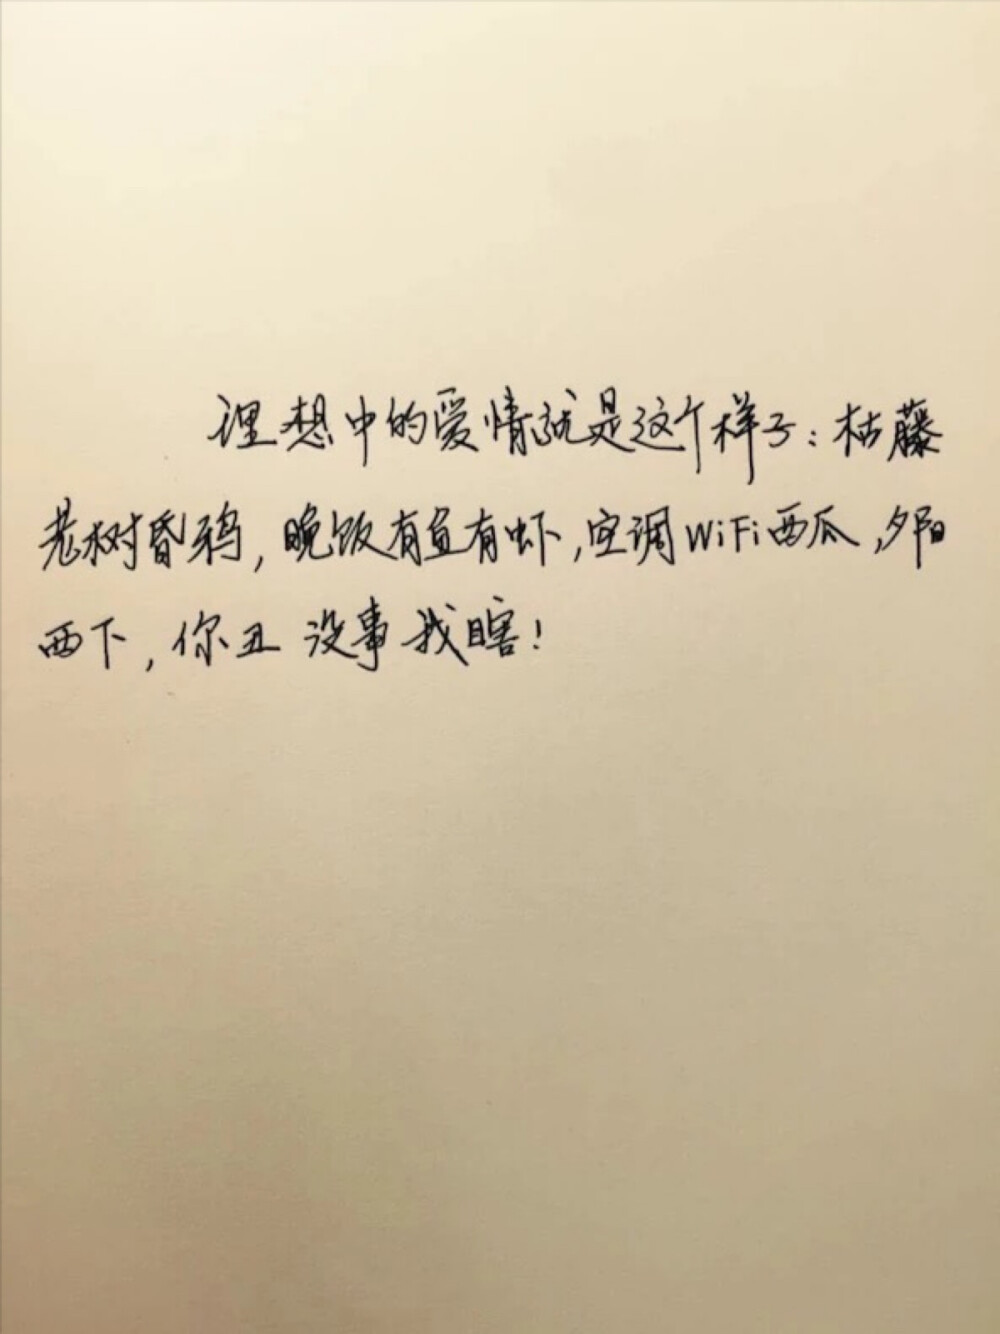 理想中的爱情就是这个样子：枯藤
老树昏鸦，晚饭有鱼有虾，空调WiFi西瓜，夕阳
西下，你丑 没事 我瞎！